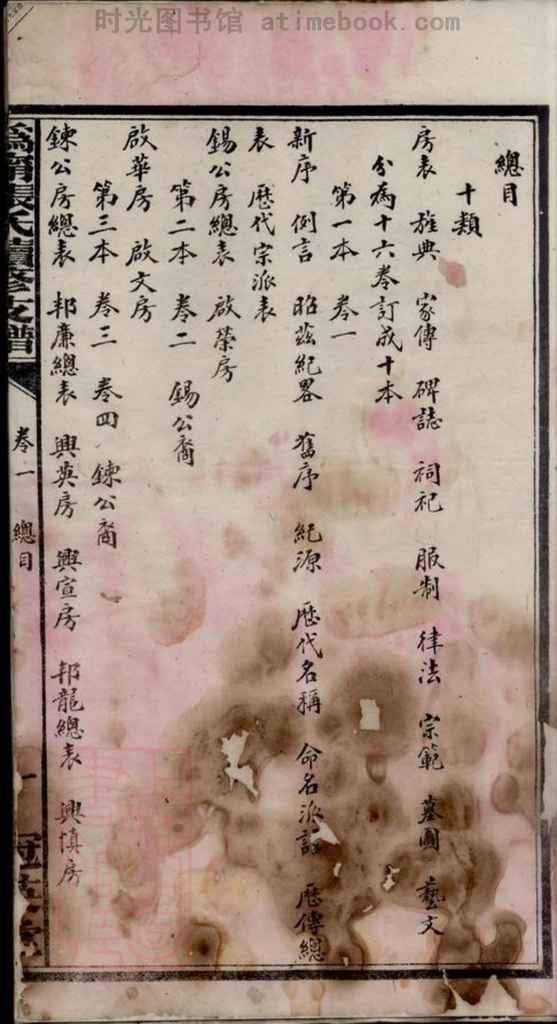 时光图书馆 atimebook.com
總目
十類
房表 旌典 家傳 碑誌 祠祀 服制 律法 宗範 墓圖 藝文
分為十六卷訂成十本
第一本 卷一
新序 例言 昭茲紀畧 舊序 紀源 歴代名稱 命名派 歴傳總
表 歴代宗派表
錫公房總表 啟榮房
第二本 卷二 錫公裔
啟華房 啟文房
第三本 卷三 卷四 鍊公裔
鍊公房總表 邦廉總表 興英房 興宣房 邦龍總表 興慎房
張氏續修支譜
卷一 總目
一